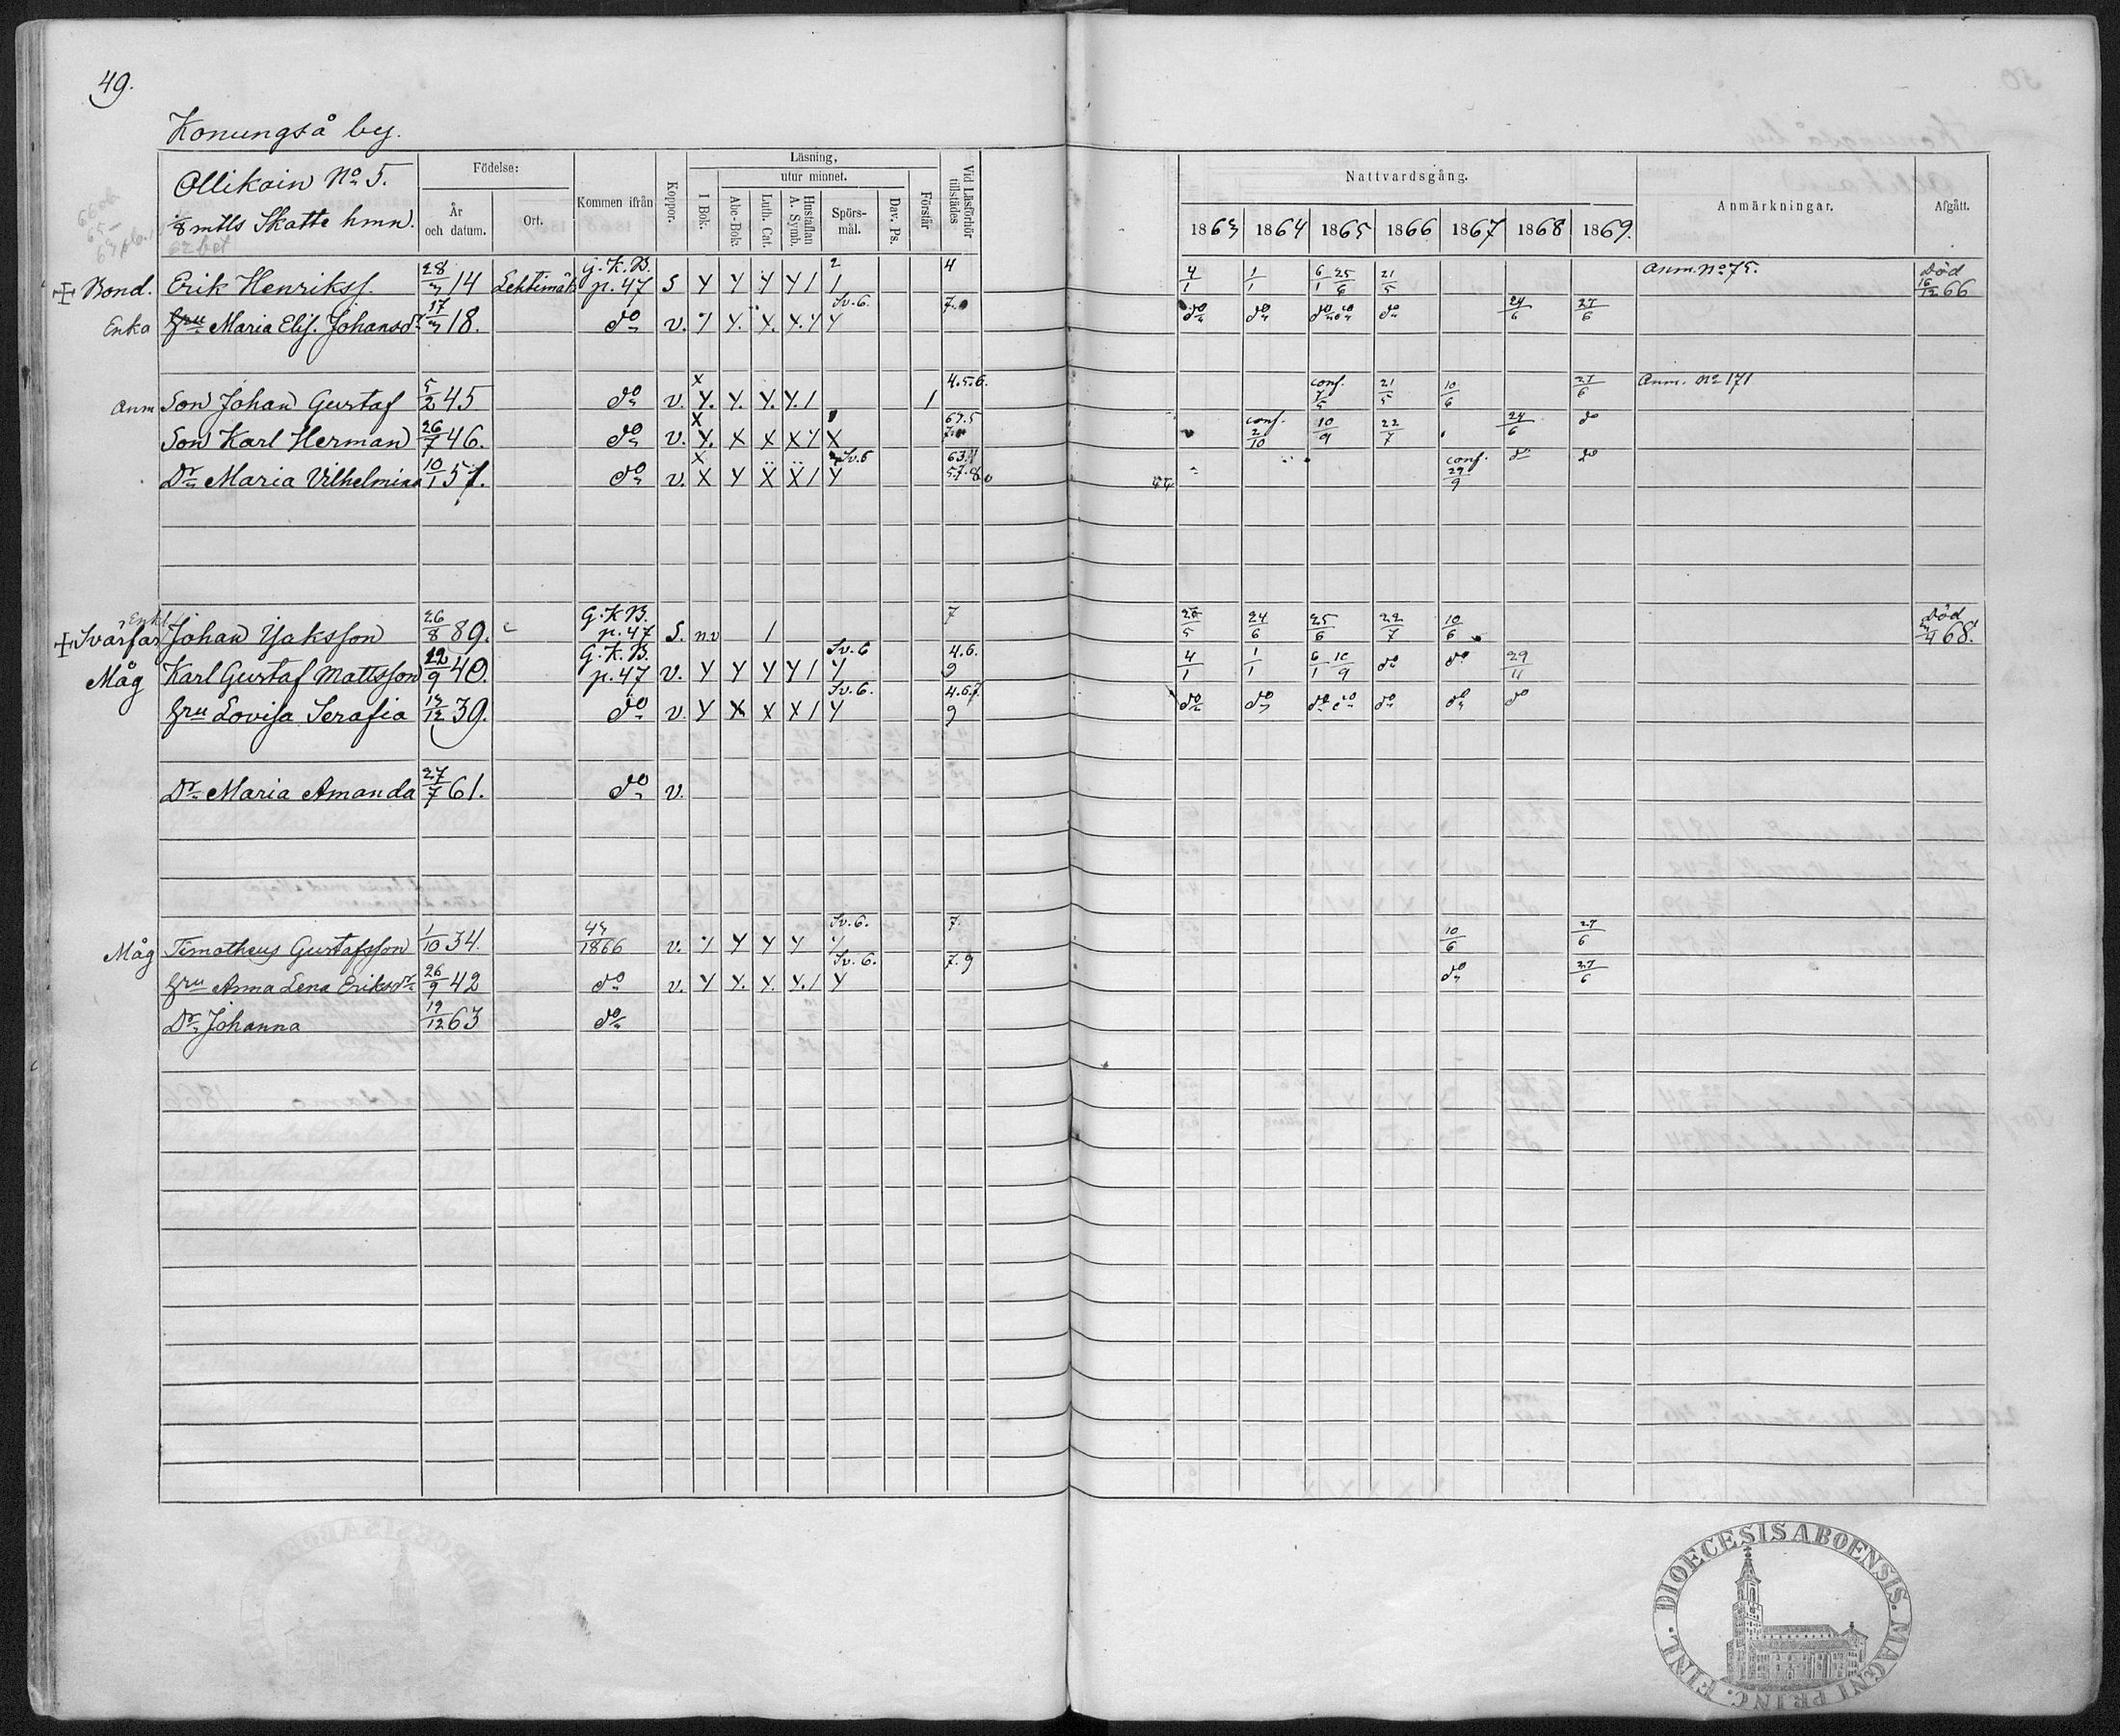 49.
Konungså by.
Ollikain No 5.
1/8 mtls Skatte hmn.
Födelse:
År och datum.
Ort.
Kommen ifrån
Koppor.
Läsning,
I Bok.
utur minnet.
Abc-Bok.
Luth. Cat.
Hustaflan A. Symb.
Spörsmål.
Dav. Ps.
Förstår
Vid Läsförhör tillstädes
Nattvardsgång.
1863 1864 1865 1866 1867 1868 1869.
Anmärkningar.
Afgått.
Bond. Erik Henrikss. 28/3 14 Lehtimäki G.K.B. p. 47 S Y Y Y Y 1 1 2 4 4/1 1/1 6/1 25/6 21/5 Anm. No 75. Död 16/12 66
Enka Hru Maria Elis. Johansdr 17/3 18. do v. Y Y. X. X. Y Y Sv. 6. 7. do do do do do 24/6 27/6
Anm Son Johan Gustaf 5/2 45 do v. X Y. Y. Y. Y. 1 1 4.5.6. conf. 21/5 10/6 27/6 Anm. No 171
Son Karl Herman 26/7 46. do v. X Y. X X X Y X conf. 2/10 10/9 22/7 24/6 do
Dr Maria Vilhelmina 10/1 51. do v. X X Y X X 1 Y Sv. 6 conf. 29/9 do do
Enkl.
Svärfar Johan Isaksson 26/8 89. G.K.B. p. 47 S. n.v 1 7 25/5 24/6 25/6 22/7 10/6 Död 68.
Måg Karl Gustaf Mattsson 22/9 40. G.K.B. p. 47 v. Y Y Y Y 1 Y Sv. 6 4.6. 9 4/1 1/1 6/1 10/9 do do 29/11
Hru Lovisa Serafia 13/12 39. do v. Y X X X 1 Y Sv. 6. 4.6.7. 9 do do do do do do do
Dr Maria Amanda 27/7 61. do v.
Måg Timotheus Gustafsson 1/10 34. 1866 v. Y Y Y Y Y Sv. 6. 7. 10/6 27/6
Hru Anna Lena Eriksdr 26/9 42 do v. Y Y. Y. Y. 1 Y Sv. 6. 7. 9 do 27/6
Dr Johanna 19/12 63 do
DIOECESIS ABOENSIS. MAGNI PRINC. FINL.